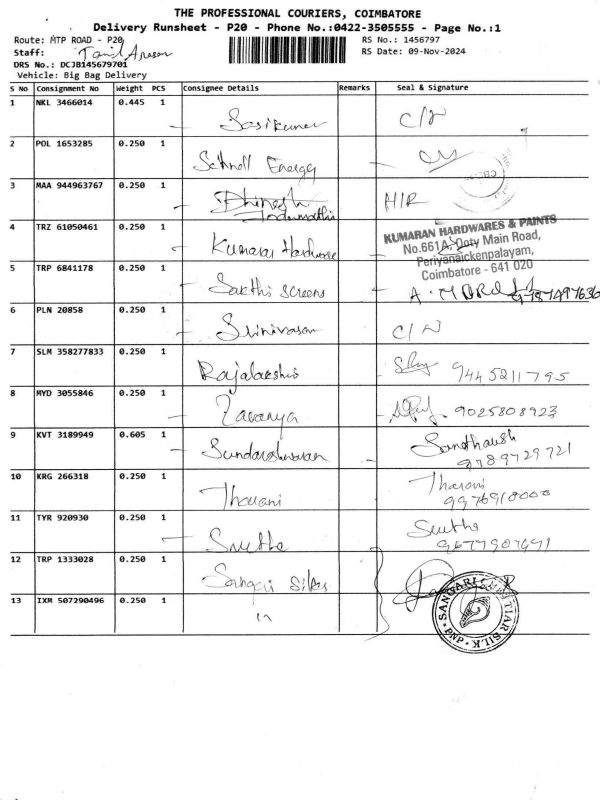 THE PROFESSIONAL COURIERS, COIMBATORE
Delivery Runsheet - P20 - Phone No.:0422-3505555 - Page No.:1
Route: MTP ROAD - P20 RS No.: 1456797
Staff: Tamil Arasan RS Date: 09-Nov-2024
DRS No.: DCJB145679701
Vehicle: Big Bag Delivery
S No Consignment No Weight PCS Consignee Details Remarks Seal & Signature
1 NKL 3466014 0.445 1
Sasikumar
2 POL 1653285 0.250 1
Schnell Energy
3 MAA 944963767 0.250 1
Dhinesh H/R
4 TRZ 61050461 0.250 1
Kumaran Hardware
KUMARAN HARDWARES & PAINTS
No.661A, Ooty Main Road,
Periyanaickenpalayam,
Coimbatore - 641 020
5 TRP 6841178 0.250 1
Sakthi Screens
6 PLN 20858 0.250 1
Srinivasan C/N
7 SLM 358277833 0.250 1
Rajalakshmi 9445211795
8 MYD 3055846 0.250 1
Lavanya 9025808923
9 KVT 3189949 0.605 1
Sundareshwaran Santhaush
9789729721
10 KRG 266318 0.250 1
Tharani Tharani
9976910000
11 TYR 920930 0.250 1
Snetha
12 TRP 1333028 0.250 1
Sangari Silks
13 IXM 507290496 0.250 1
SANGARI
SILK
PNP